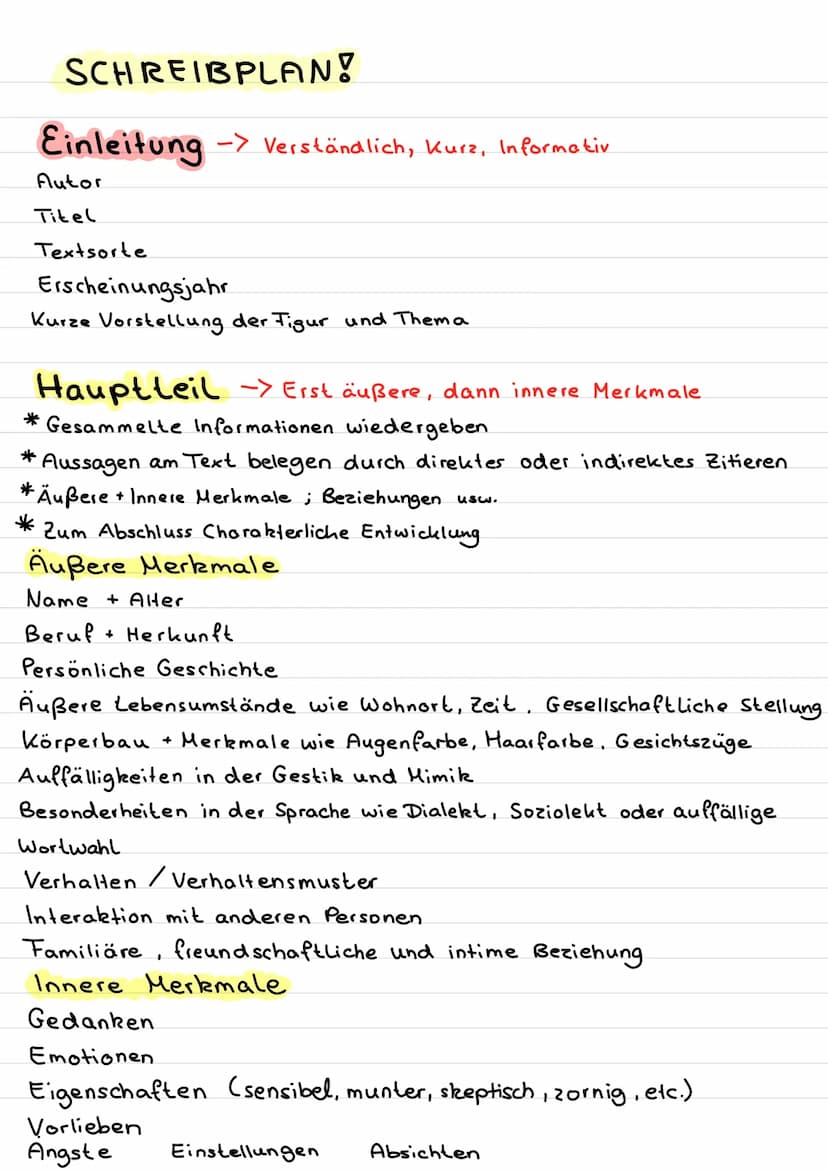 SCHREIBPLAN!
Einleitung -> Verständlich, Kurz, Informativ
Autor
Titel
Textsorte
Erscheinungsjahr
Kurze Vorstellung der Figur und Thema
Hauptteil -> Erst äußere, dann innere Merkmale
* Gesammelte Informationen wiedergeben
* Aussagen am Text belegen durch direktes oder indirektes Zitieren
* Äußere + Innere Merkmale ; Beziehungen usw.
* Zum Abschluss Charakterliche Entwicklung
Äußere Merkmale
Name + Alter
Beruf + Herkunft
Persönliche Geschichte
Äußere Lebensumstände wie Wohnort, Zeit, Gesellschaftliche Stellung
Körperbau + Merkmale wie Augenfarbe, Haarfarbe, Gesichtszüge
Auffälligkeiten in der Gestik und Mimik
Besonderheiten in der Sprache wie Dialekt, Soziolekt oder auffällige
Wortwahl
Verhalten / Verhaltensmuster
Interaktion mit anderen Personen
Familiäre, freundschaftliche und intime Beziehung
Innere Merkmale
Gedanken
Emotionen
Eigenschaften (sensibel, munter, skeptisch, zornig, etc.)
Vorlieben
Ängste Einstellungen Absichten